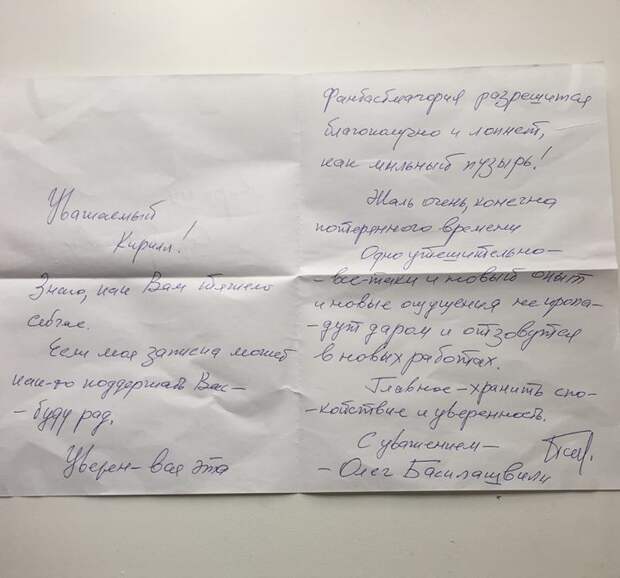 Уважаемый
Кирилл!
Знаю, как Вам тяжело
сейчас.
Если моя записка может
как-то поддержать Вас -
- буду рад.
Уверен - вся эта
Фантасмагория разрешится
благополучно и лопнет,
как мыльный пузырь!
Жаль очень, конечно
потерянного времени
Одно утешительно -
- все-таки и новый опыт
и новые ощущения не пропа-
- дут даром и отзовутся
в новых работах.
Главное - хранить спо-
- койствие и уверенность.
С уважением -
- Олег Басилашвили